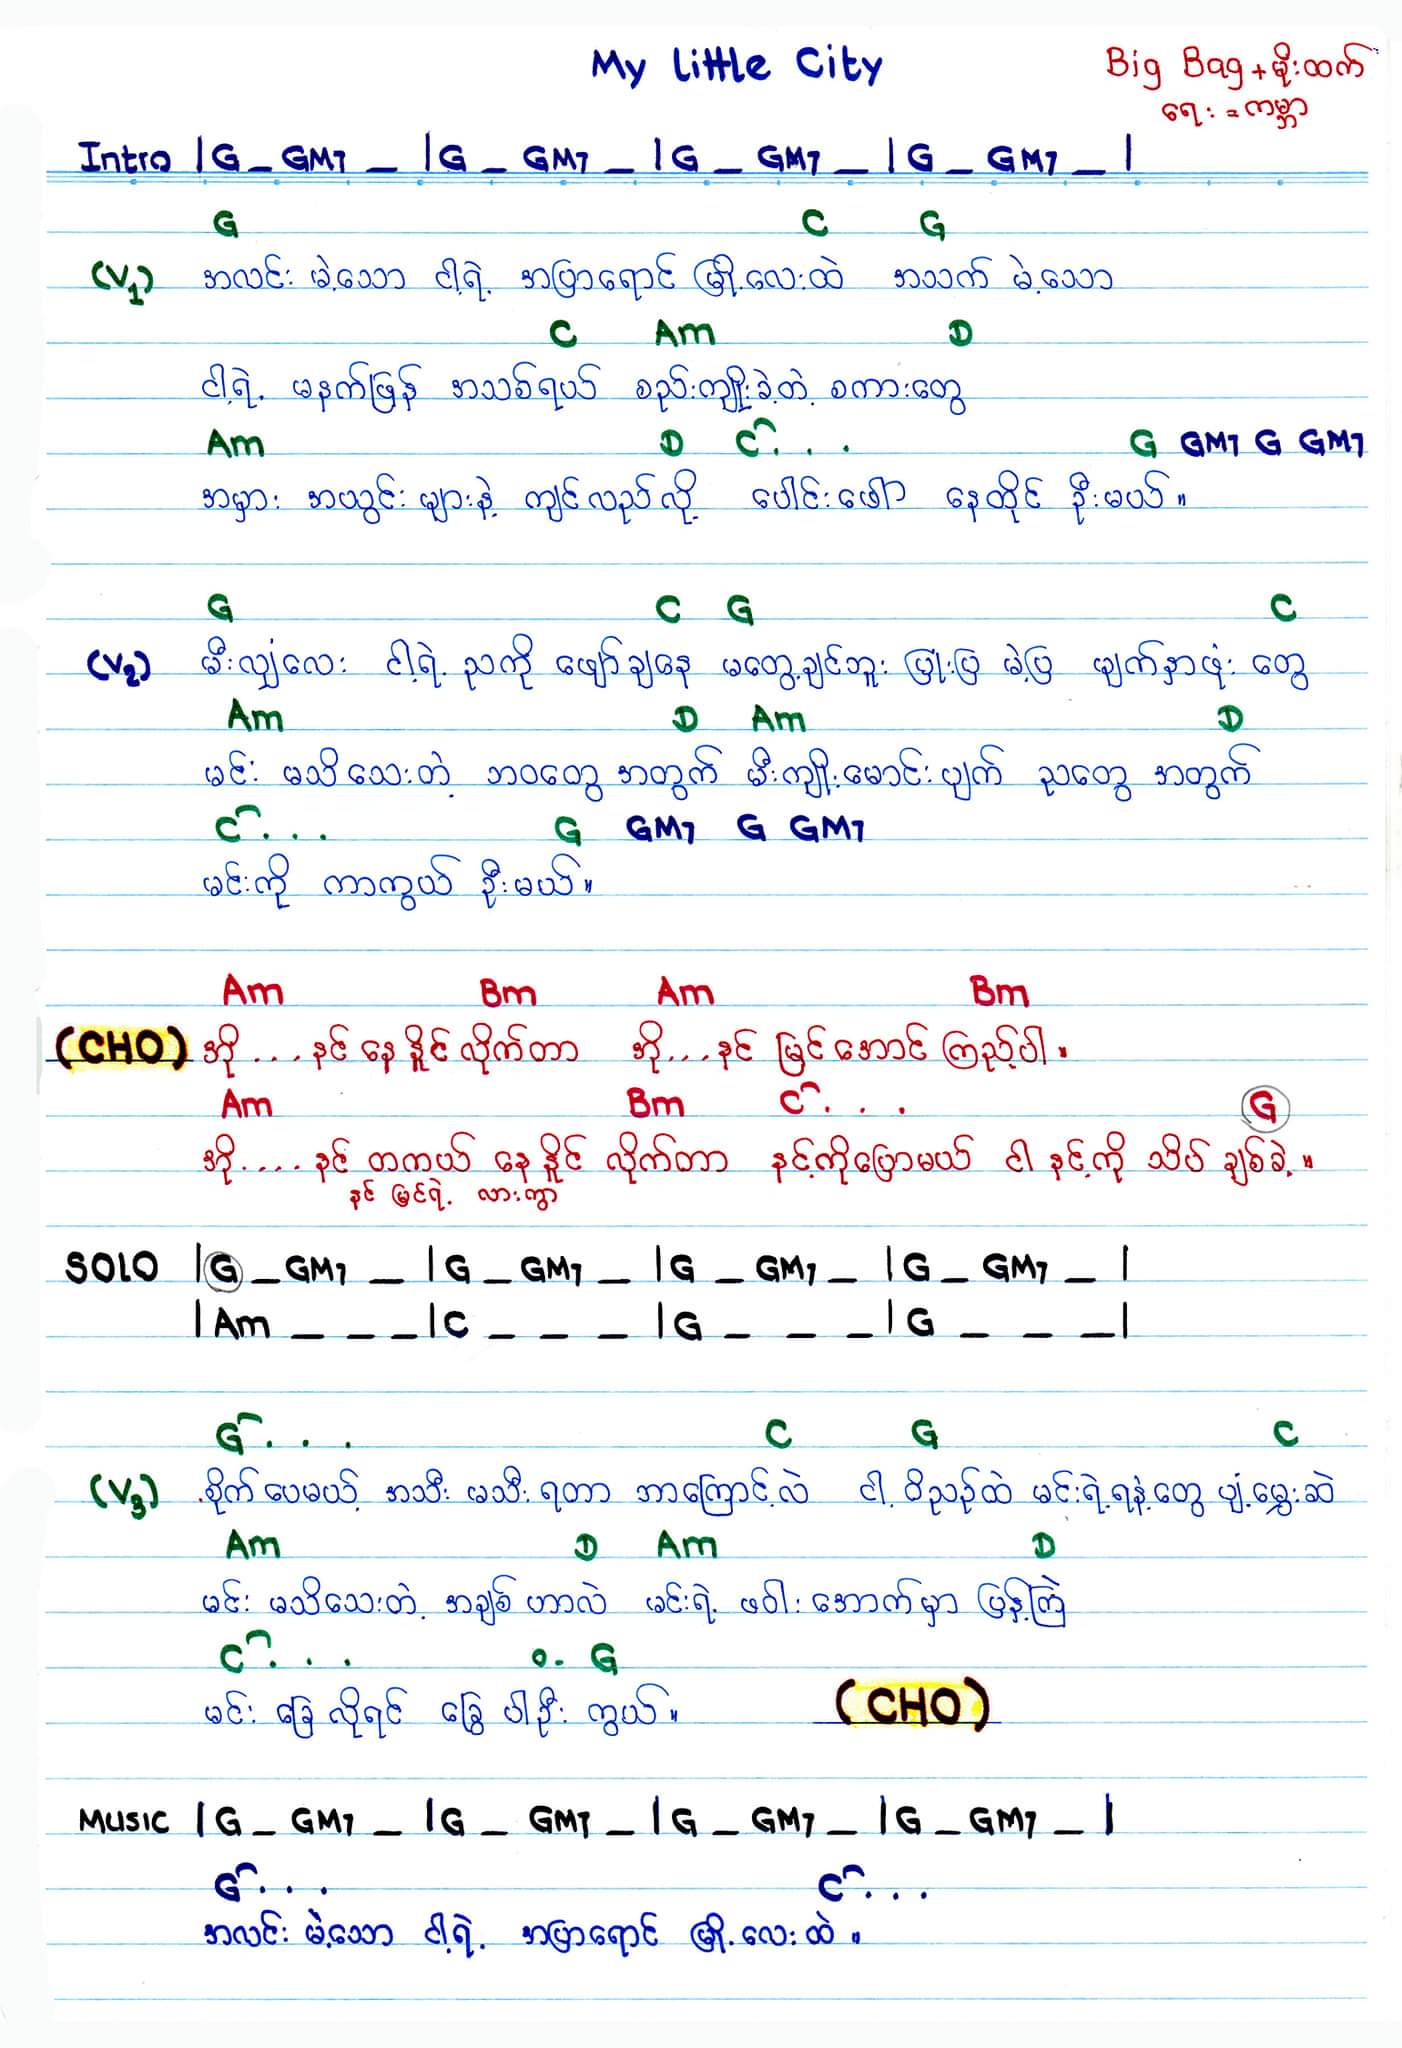 My Little City
Big Bag + မိုးထက်
ရေး = ကမ္ဘာ
Intro |G _ GM7 _ |G _ GM7 _ |G _ GM7 _ |G _ GM7 _ |
G C G
(V1) အလင်း မဲ့သော ငါ့ရဲ့ အပြာရောင် မြို့လေးထဲ အသက် မဲ့သော
C Am D
ငါ့ရဲ့ မနက်ဖြန် အသစ်ရယ် စည်းကျိုးခဲ့တဲ့ စကားတွေ
Am D C . . . G GM7 G GM7
အမှား အယွင်း များနဲ့ ကျင်လည်လို့ ပေါင်းဖော် နေထိုင် ဦးမယ်။
G C G C
(V2) မီးလျှံလေး ငါ့ရဲ့ ညကို ဖျော်ချနေ မတွေ့ချင်ဘူး ပြုံးပြ မဲ့ပြ မျက်နှာဖုံး တွေ
Am D Am D
မင်း မသိသေးတဲ့ ဘဝတွေ အတွက် မီးကျိုးမောင်းပျက် ညတွေ အတွက်
C . . . G GM7 G GM7
မင်းကို ကာကွယ် ဦးမယ်။
Am Bm Am Bm
(CHO) အို ... နင် နေနိုင် လိုက်တာ အို ... နင် မြင်အောင် ကြည့်ပါ။
Am Bm C . . . G
အို .... နင် တကယ် နေနိုင် လိုက်တာ နင့်ကိုပြောမယ် ငါ နင့်ကို သိပ် ချစ်ခဲ့။
နင် မြင်ရဲ့ လားကွာ
SOLO |G _ GM7 _ |G _ GM7 _ |G _ GM7 _ |G _ GM7 _ |
|Am _ _ _ |C _ _ _ |G _ _ _ |G _ _ _ |
G . . . C G C
(V3) စိုက်ပေမယ့် အသီး မသီးရတာ ဘာကြောင့်လဲ ငါ့ ဝိညဉ်ထဲ မင်းရဲ့ရနံ့တွေ ပျံ့မွှေးဆဲ
Am D Am D
မင်း မသိသေးတဲ့ အချစ် ဟာလဲ မင်းရဲ့ ဖဝါးအောက်မှာ ပြန့်ကြဲ
C . . . o. G
မင်း ခြေလိုရင် ခြွေ ပါဦး ကွယ်။ (CHO)
MUSIC |G _ GM7 _ |G _ GM7 _ |G _ GM7 _ |G _ GM7 _ |
G . . . C . . .
အလင်း မဲ့သော ငါ့ရဲ့ အပြာရောင် မြို့လေးထဲ။